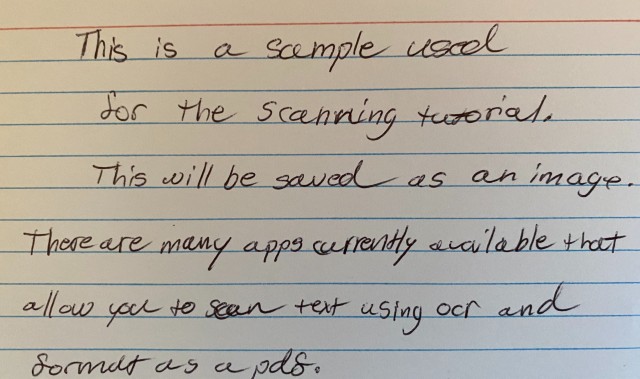 This is a sample used
for the scanning tutorial.
This will be saved as an image.
There are many apps currently available that
allow you to scan text using ocr and
format as a pdf.